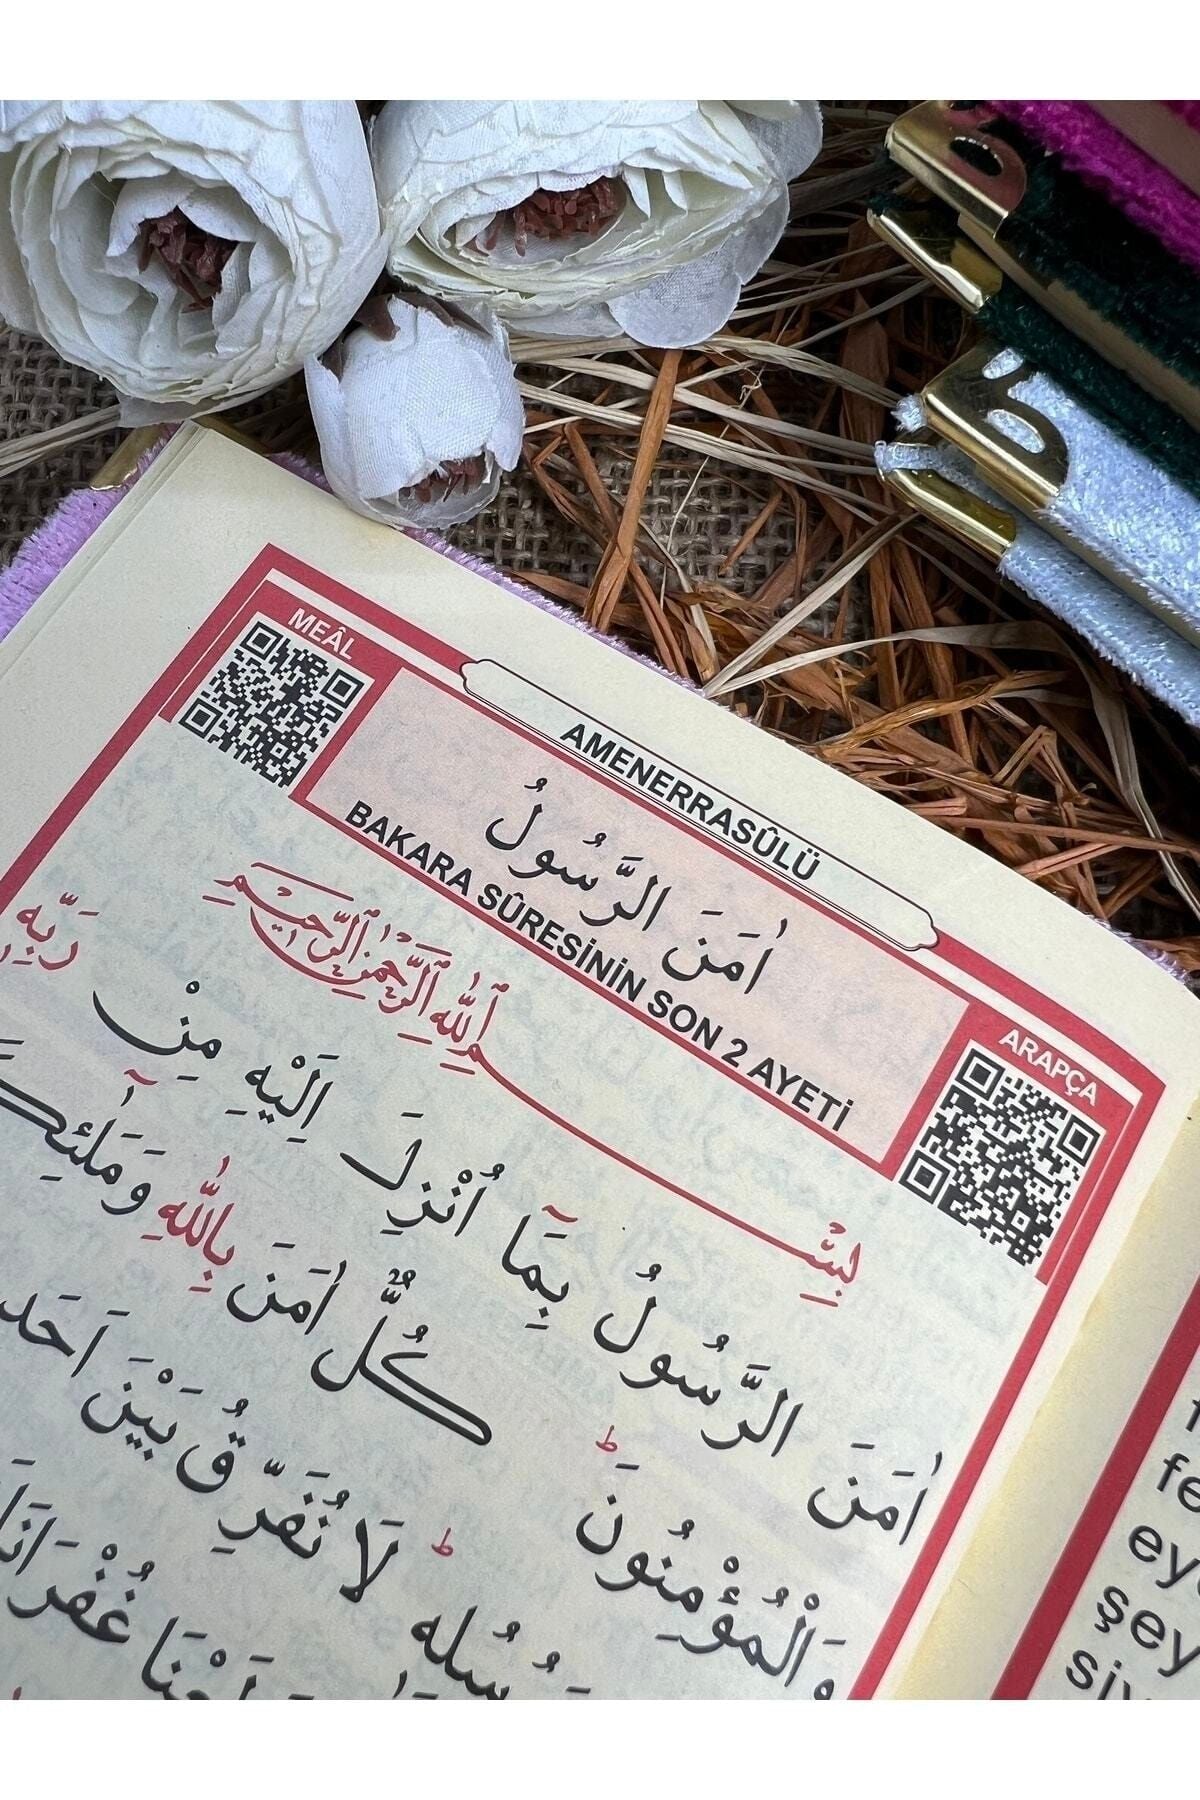 MEÂL
AMENERRASÛLÜ
اٰمَنَ الرَّسُولُ
BAKARA SÛRESİNİN SON 2 AYETİ
ARAPÇA
بِسْمِ اللّٰهِ الرَّحْمٰنِ الرَّحِيمِ
اٰمَنَ الرَّسُولُ بِمَٓا اُنْزِلَ اِلَيْهِ مِنْ رَبِّهٖ
وَالْمُؤْمِنُونَ ط كُلٌّ اٰمَنَ بِاللّٰهِ
ط لَا نُفَرِّقُ بَيْنَ اَحَدٍ
غُفْرَانَ
şey